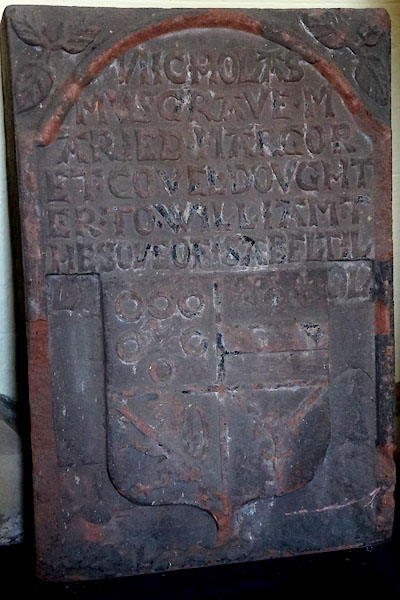 NICHOLAS
MVSGRAVE·M
ARIED MARGOR
ET COVEL DOVGHT
ER TO WILLIAM T
HE SONE OF ISABEL TIL